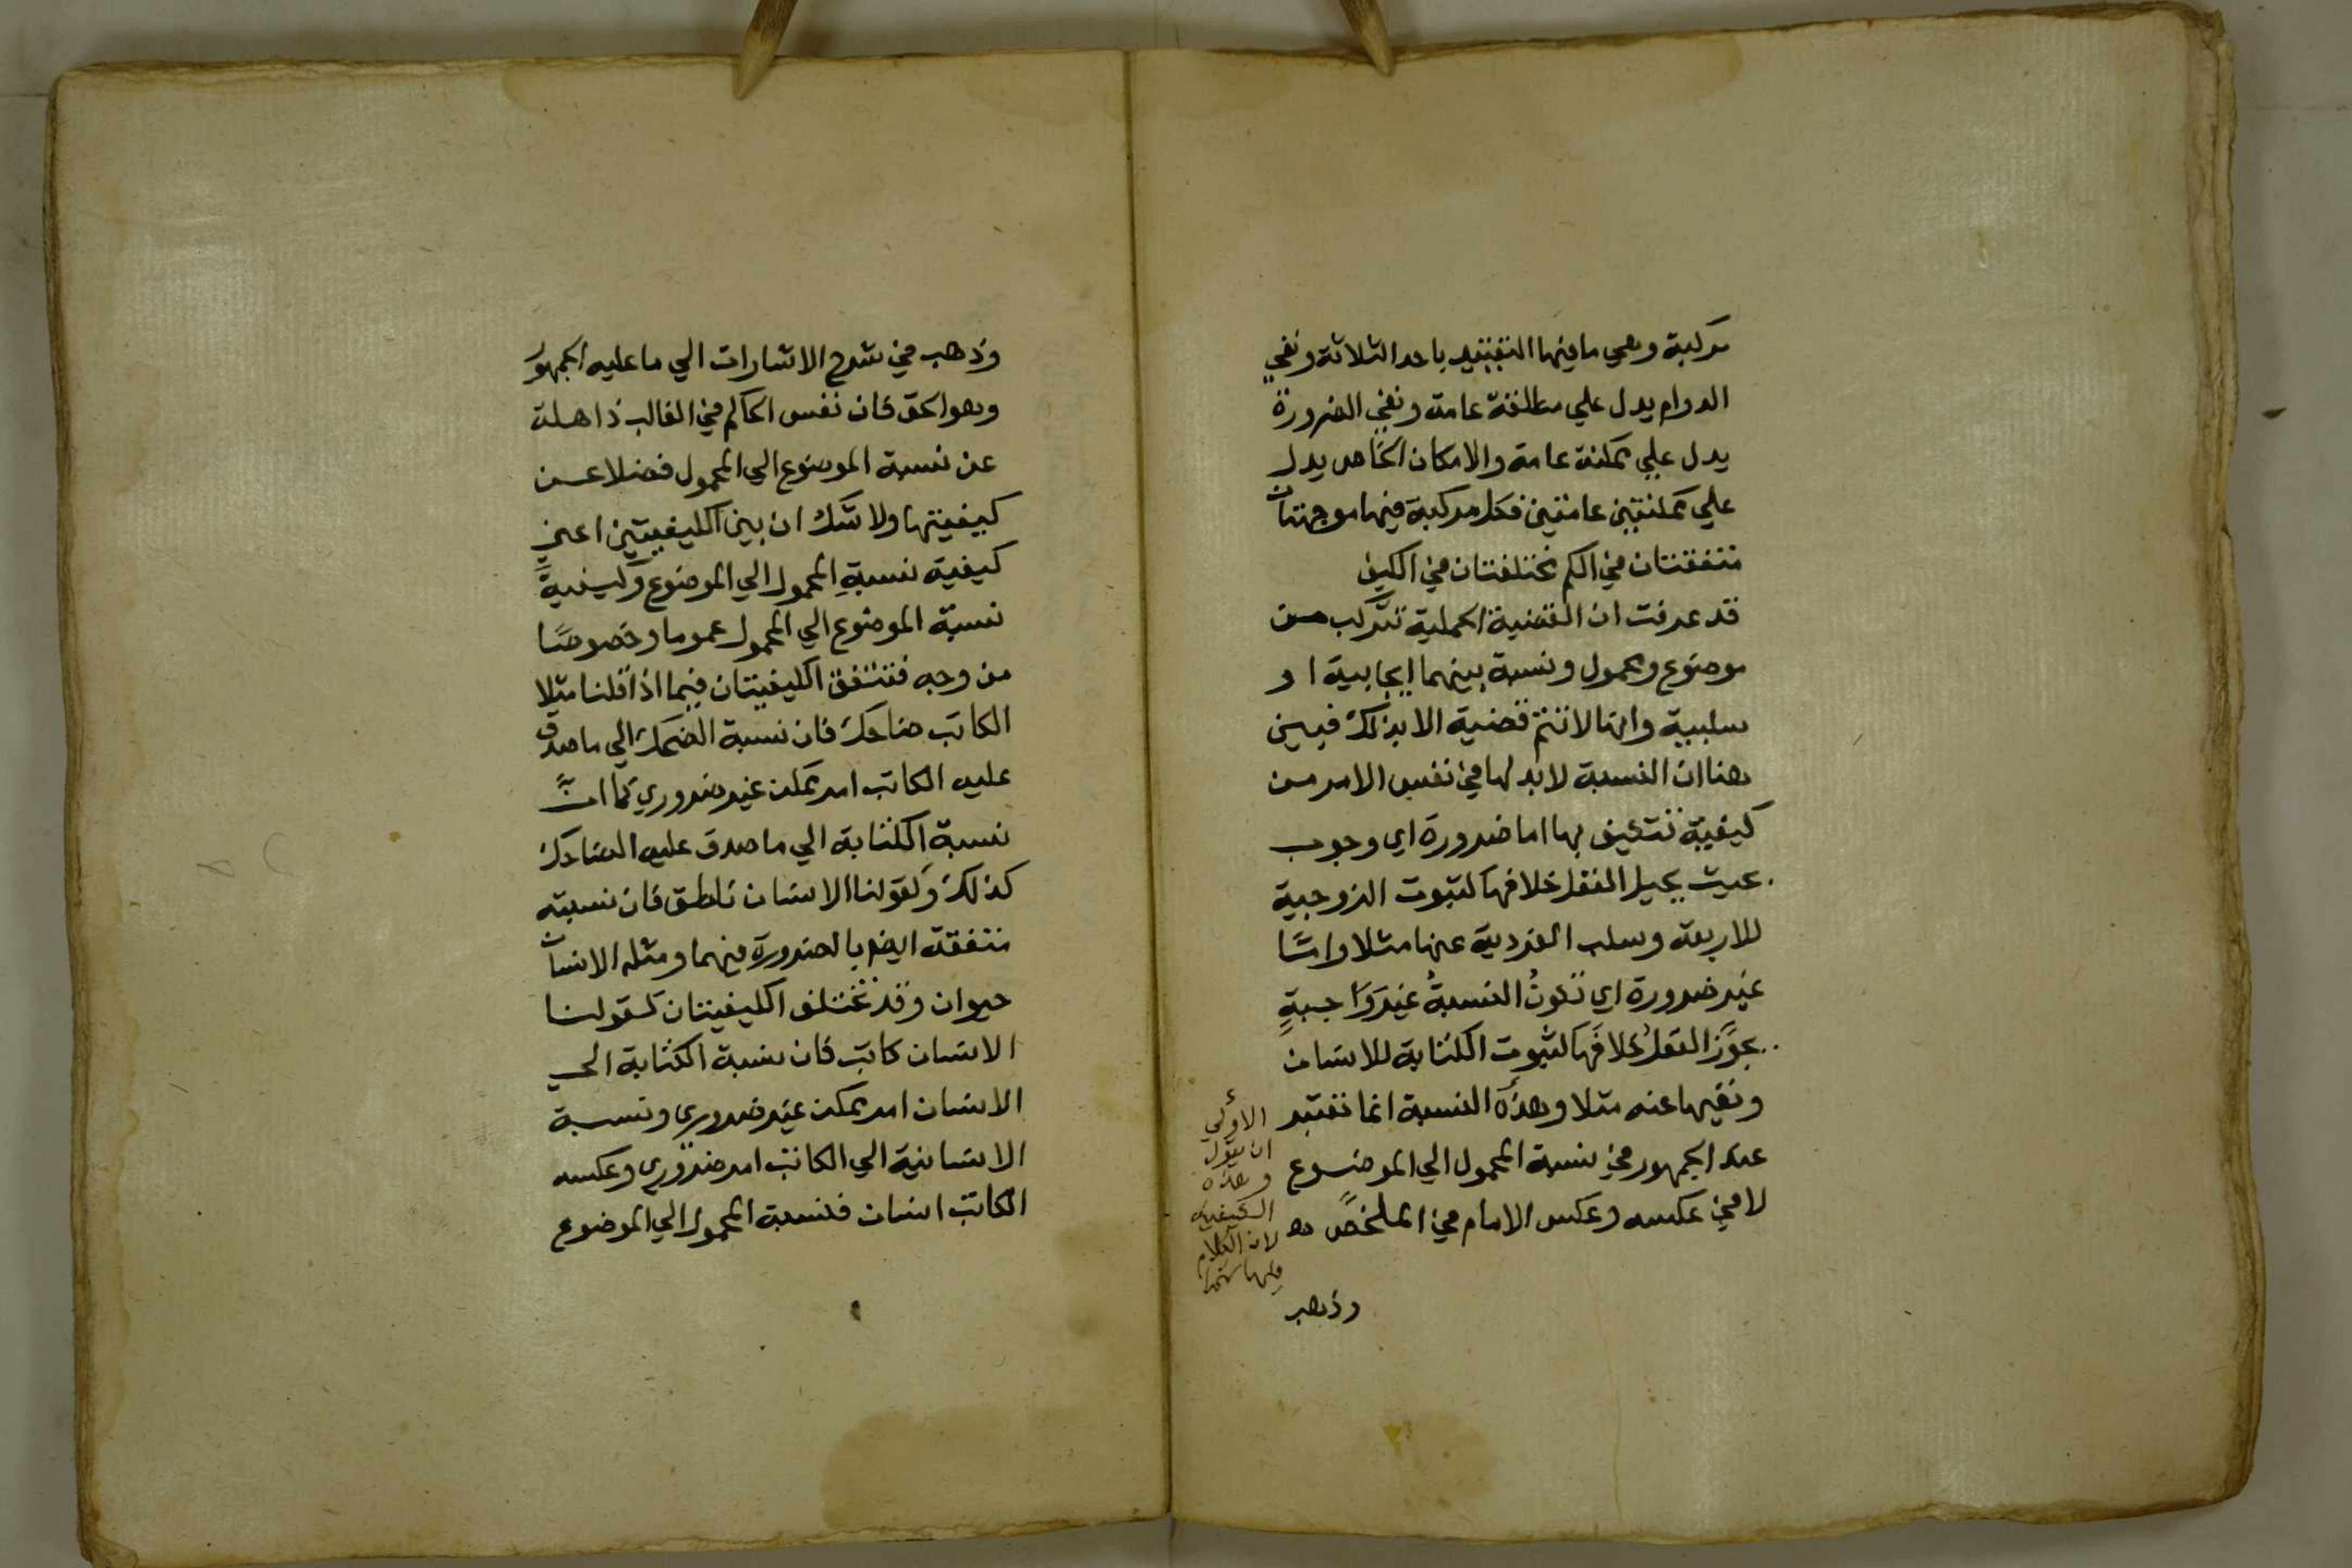 مركبة وهي ما فيها التقييد باحد الثلاثة ونفي
الدوام يدل علي مطلقة عامة ونفي الضرورة
يدل علي ممكنة عامة والامكان الخاص يدل
علي ممكنتين عامتين فكل مركبة فيها موجهتان
متفقتان في الكم مختلفتان في الكيف
قد عرفت ان القضية الحملية تتركب من
موضوع ومحمول ونسبة بينهما ايجابية او
سلبية وانها لا تتم قضية الا بذلك فبين
هنا ان النسبة لا بد لها في نفس الامر من
كيفية تتكيف بها اما ضرورة اي وجوب
بحيث يحيل العقل خلافها كثبوت الزوجية
للاربعة وسلب الفردية عنها مثلا واما
غير ضرورة اي تكونُ النسبةُ غيرَ واجبةٍ
يجوّز العقلُ خلافَها كثبوت الكتابة للانسان
ونفيها عنه مثلا وهذه النسبة انما تعتبر
عند الجمهور في نسبة المحمول الي الموضوع
لا في عكسه وعكس الامام في الملخص
الاولى
ان يقول
وهذه
الكيفية
لان الكلام
فيها
وذهب
وذهب في شرح الاشارات الي ما عليه الجمهور
وهو الحق فان نفس الحاكم في الغالب ذاهلة
عن نسبة الموضوع الي المحمول فضلا عن
كيفيتها ولا شك ان بين الكيفيتين اعني
كيفية نسبةِ المحمول الي الموضوع وكيفيةَ
نسبة الموضوع الي المحمول عموما وخصوصًا
من وجه فتتفق الكيفيتان فيما اذا قلنا مثلا
الكاتب ضاحك فان نسبة الضحك الي ما صدق
عليه الكاتب امر ممكن غير ضروري كما انّ
نسبة الكتابة الي ما صدق عليه الضاحك
كذلك وكقولنا الانسان ناطق فان نسبته
متفقة ايضا بالضرورة فيهما ومثله الانسان
حيوان وقد تختلف الكيفيتان كقولنا
الانسان كاتب فان نسبة الكتابة الي
الانسان امر ممكن غير ضروري ونسبة
الانسانية الي الكاتب امر ضروري وعكسه
الكاتب انسان فنسبة المحمول الي الموضوع